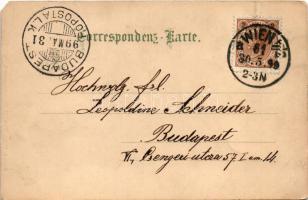 Correspondenz-Karte.
BUDAPEST
99 MÁJ. 31
WIEN
61
30.5.99
2-3N
Hochwlg. Frl.
Leopoldine Schneider
Budapest
VI, Bengeri utcza 57 I em. 14.